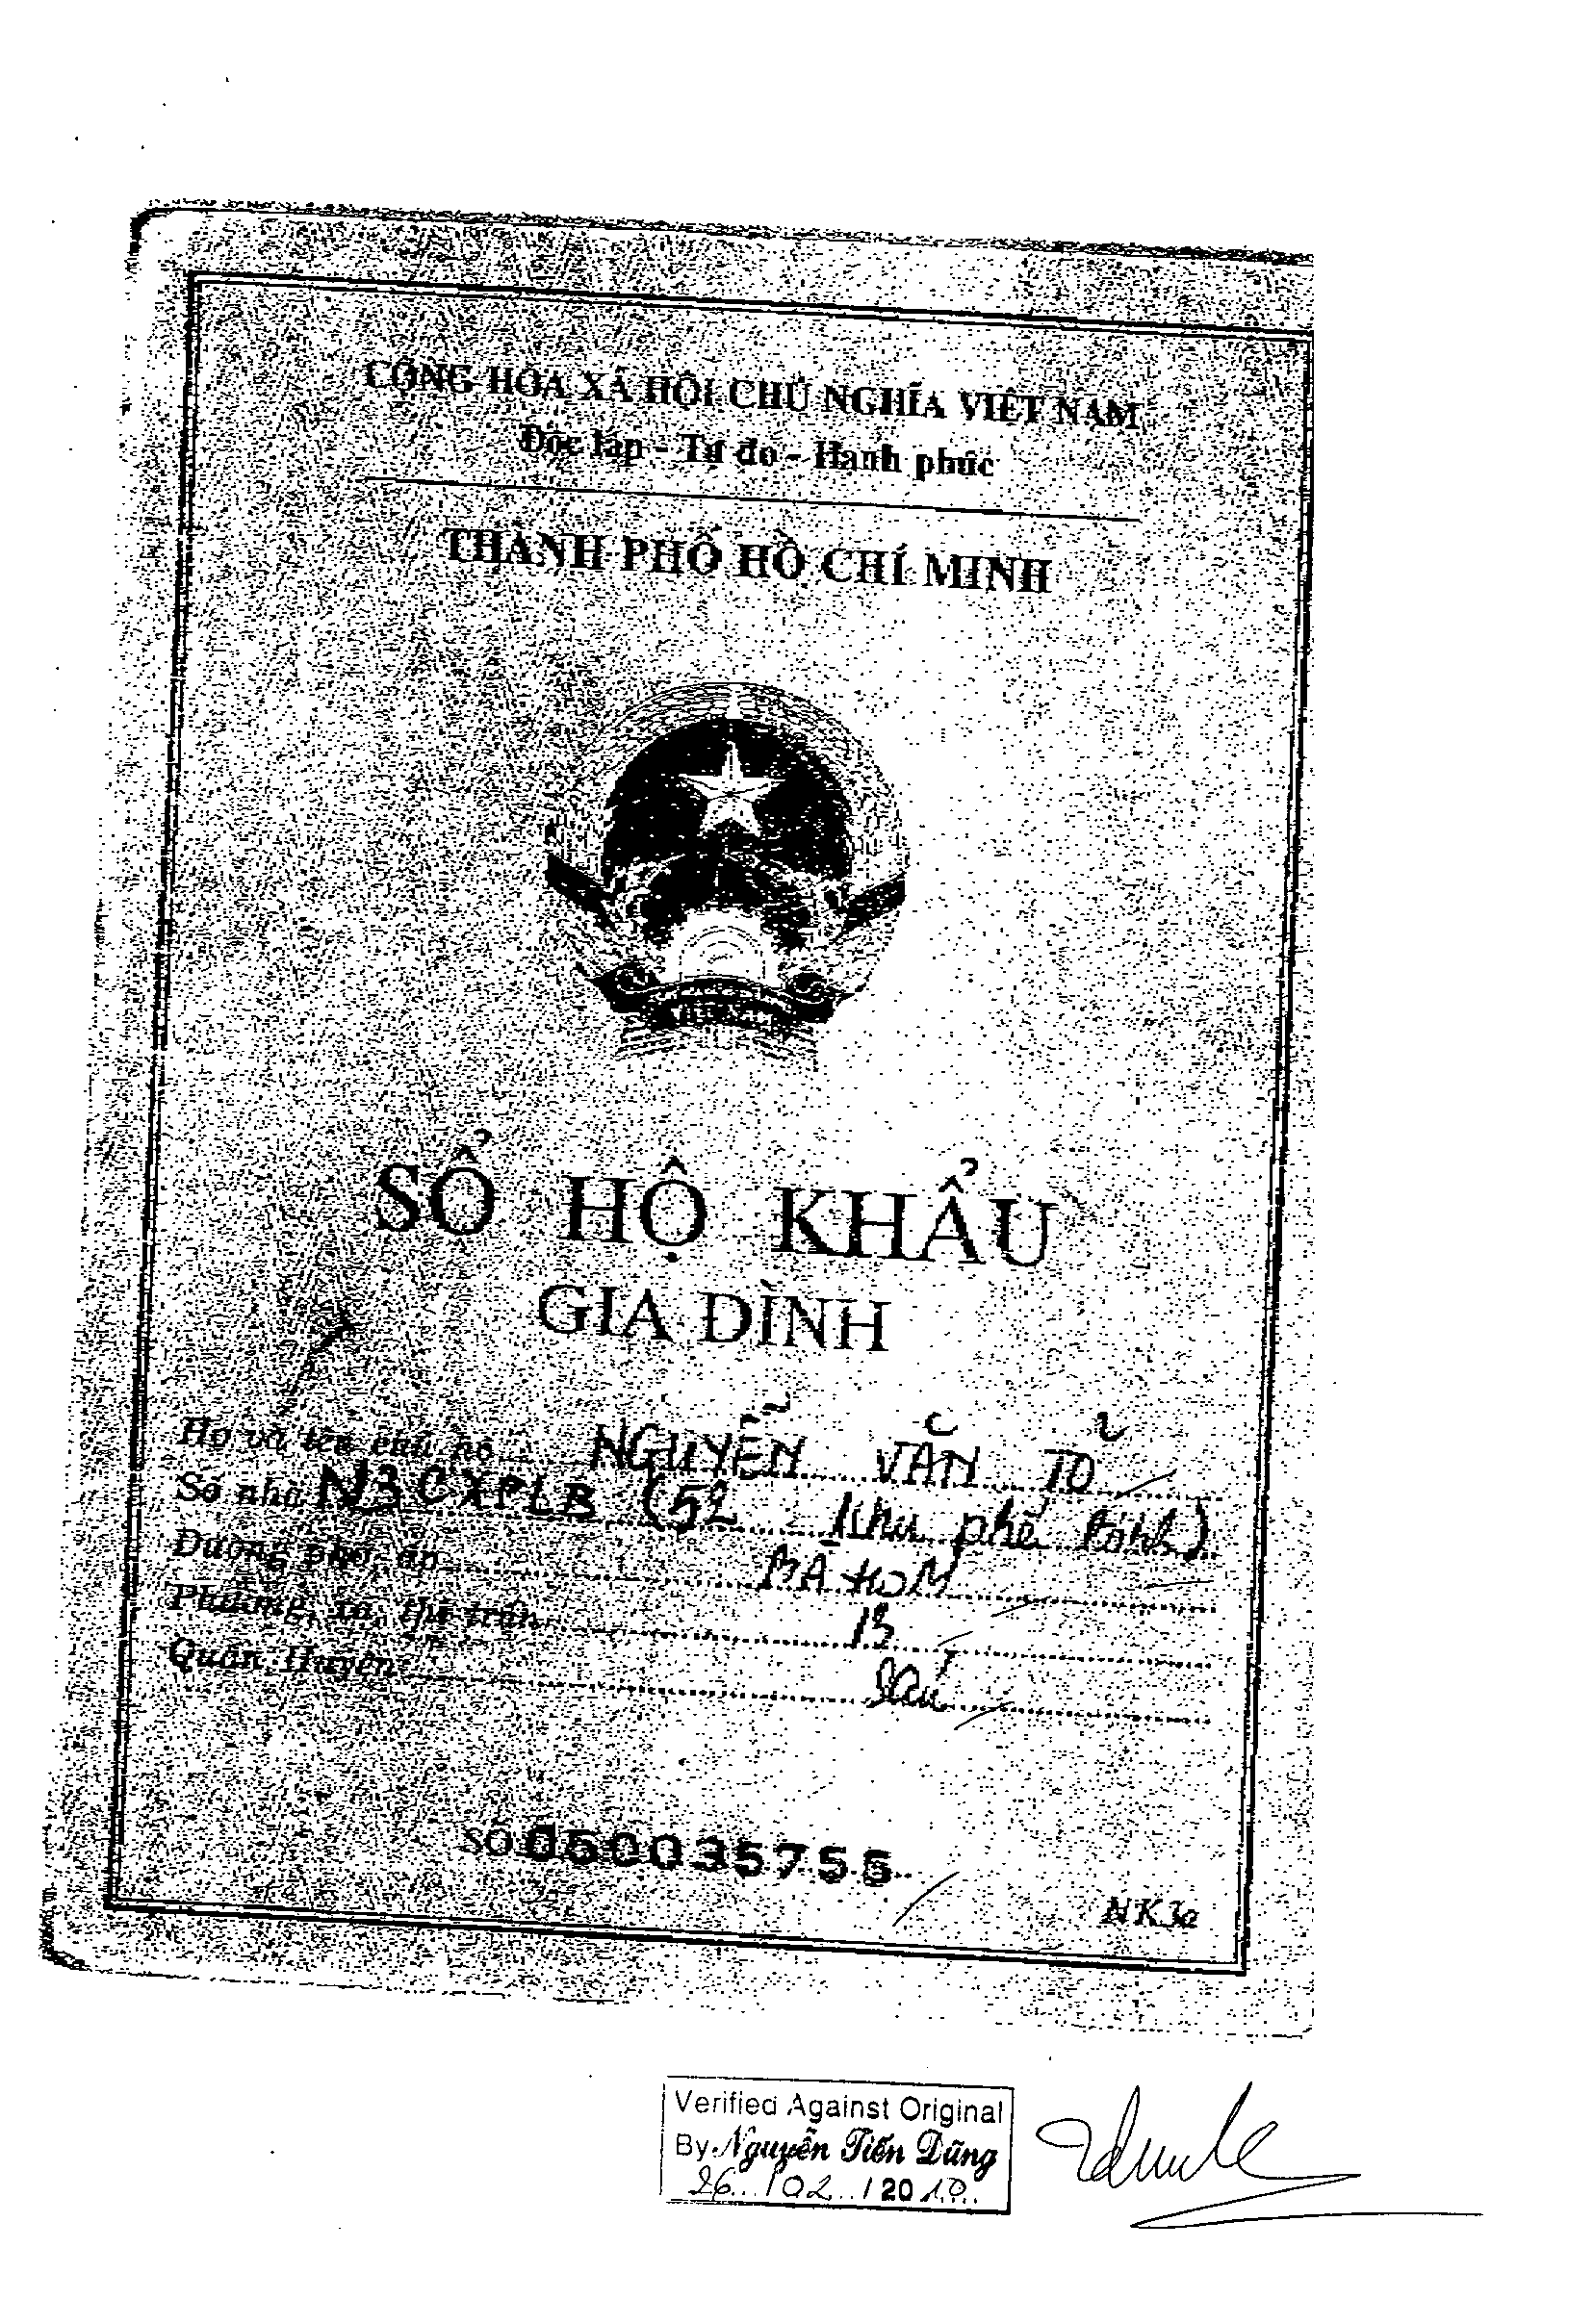 CỘNG HÒA XÃ HỘI CHỦ NGHĨA VIỆT NAM
Độc lập - Tự do - Hạnh phúc
THÀNH PHỐ HỒ CHÍ MINH
SỔ HỘ KHẨU
GIA ĐÌNH
Họ và tên chủ hộ NGUYỄN VĂN TỎ
Số nhà N3 CXPLB (52 Khu phố
Đường phố, ấp BÀ HOM
Phường, xã, thị trấn 13
Quận, Huyện Sáu
SỐ 060035755
NK3a
Verified Against Original
By. Nguyễn Tiến Dũng
26 / 02 / 2010